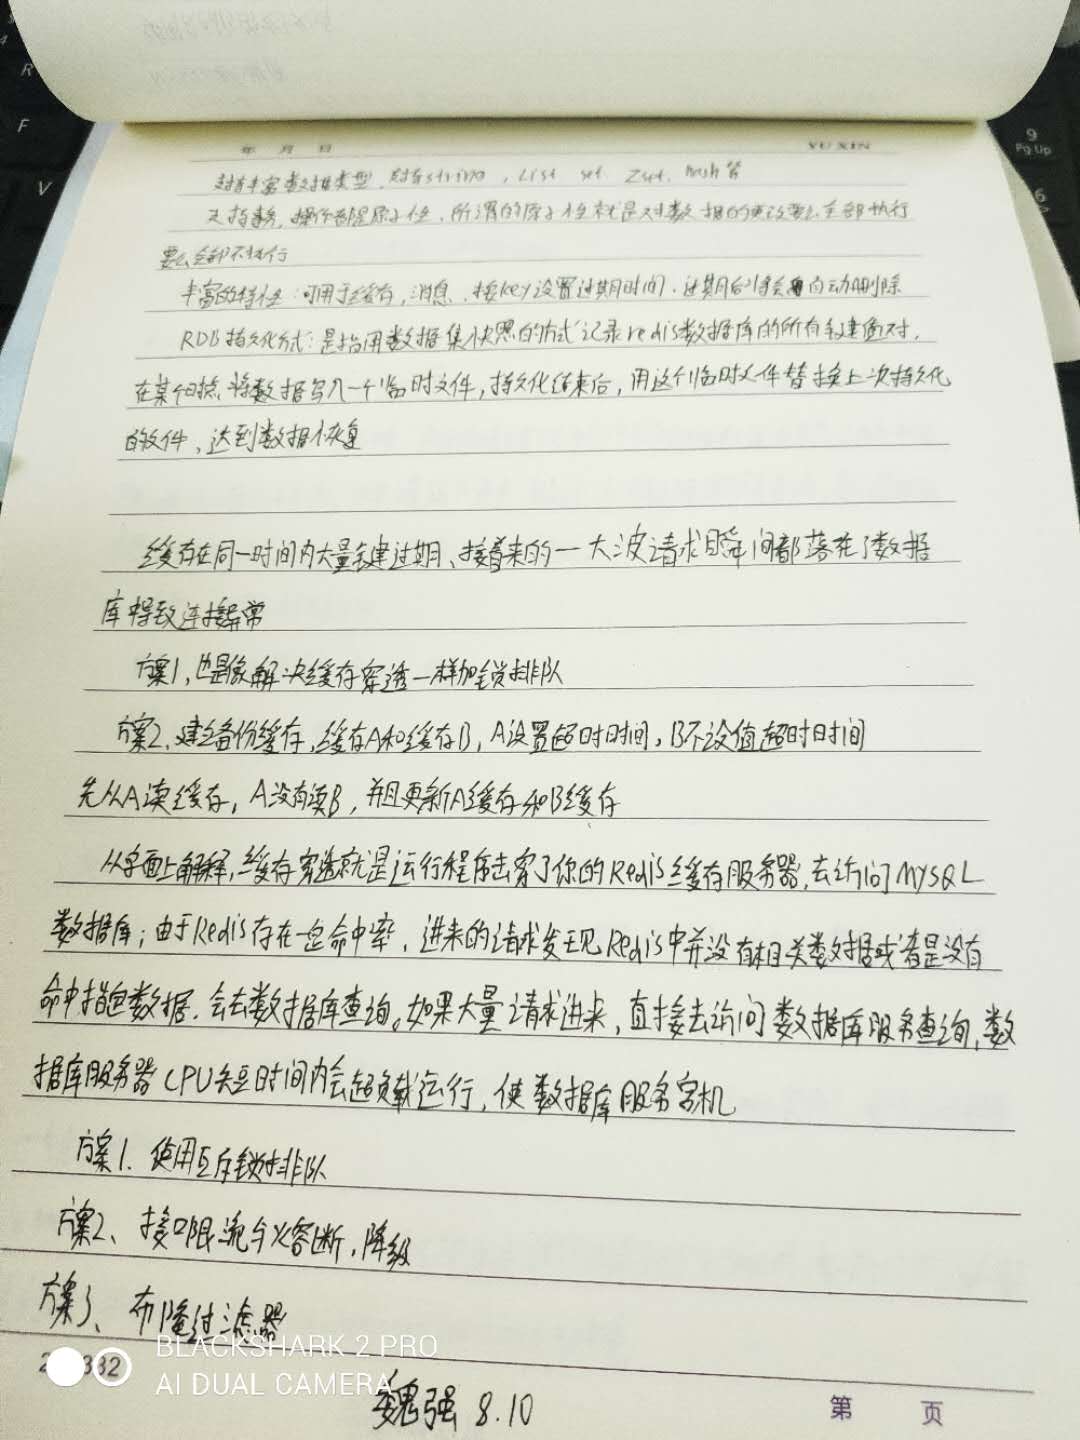 年 月 日 YU XIN
支持丰富数据类型,支持string,List set Zset, hash等
支持事务,操作都是原子性,所谓的原子性就是对数据的更改要么全部执行
要么全部不执行
丰富的特性:可用于缓存,消息,按key设置过期时间,过期后将会自动删除
RDB持久化方式:是指用数据集快照的方式记录redis数据库的所有键值对,
在某个时点将数据写入一个临时文件,持久化结束后,用这个临时文件替换上次持久化
的文件、达到数据恢复
缓存在同一时间内大量键过期、接着来的一大波请求瞬间都落在了数据
库中导致连接异常
方案1,也是像解决缓存穿透一样加锁排队
方案2,建立备份缓存,缓存A和缓存B,A设置超时时间,B不设值超时时间
先从A读缓存,A没有读B,并且更新A缓存和B缓存
从字面上解释,缓存穿透就是运行程序击穿了你的Redis缓存服务器,去访问MYSQL
数据库;由于Redis存在一定命中率,进来的请求发现Redis中并没有相关数据或者是没有
命中指定数据.会去数据库查询。如果大量请求进来,直接去访问数据库服务查询,数
据库服务器CPU短时间内会超负载运行,使数据库服务宕机
方案1.使用互斥锁排队
方案2、接口限流与熔断,降级
方案3、布隆过滤器
BLACKSHARK 2 PRO
AI DUAL CAMERA
魏强 8.10
第 页